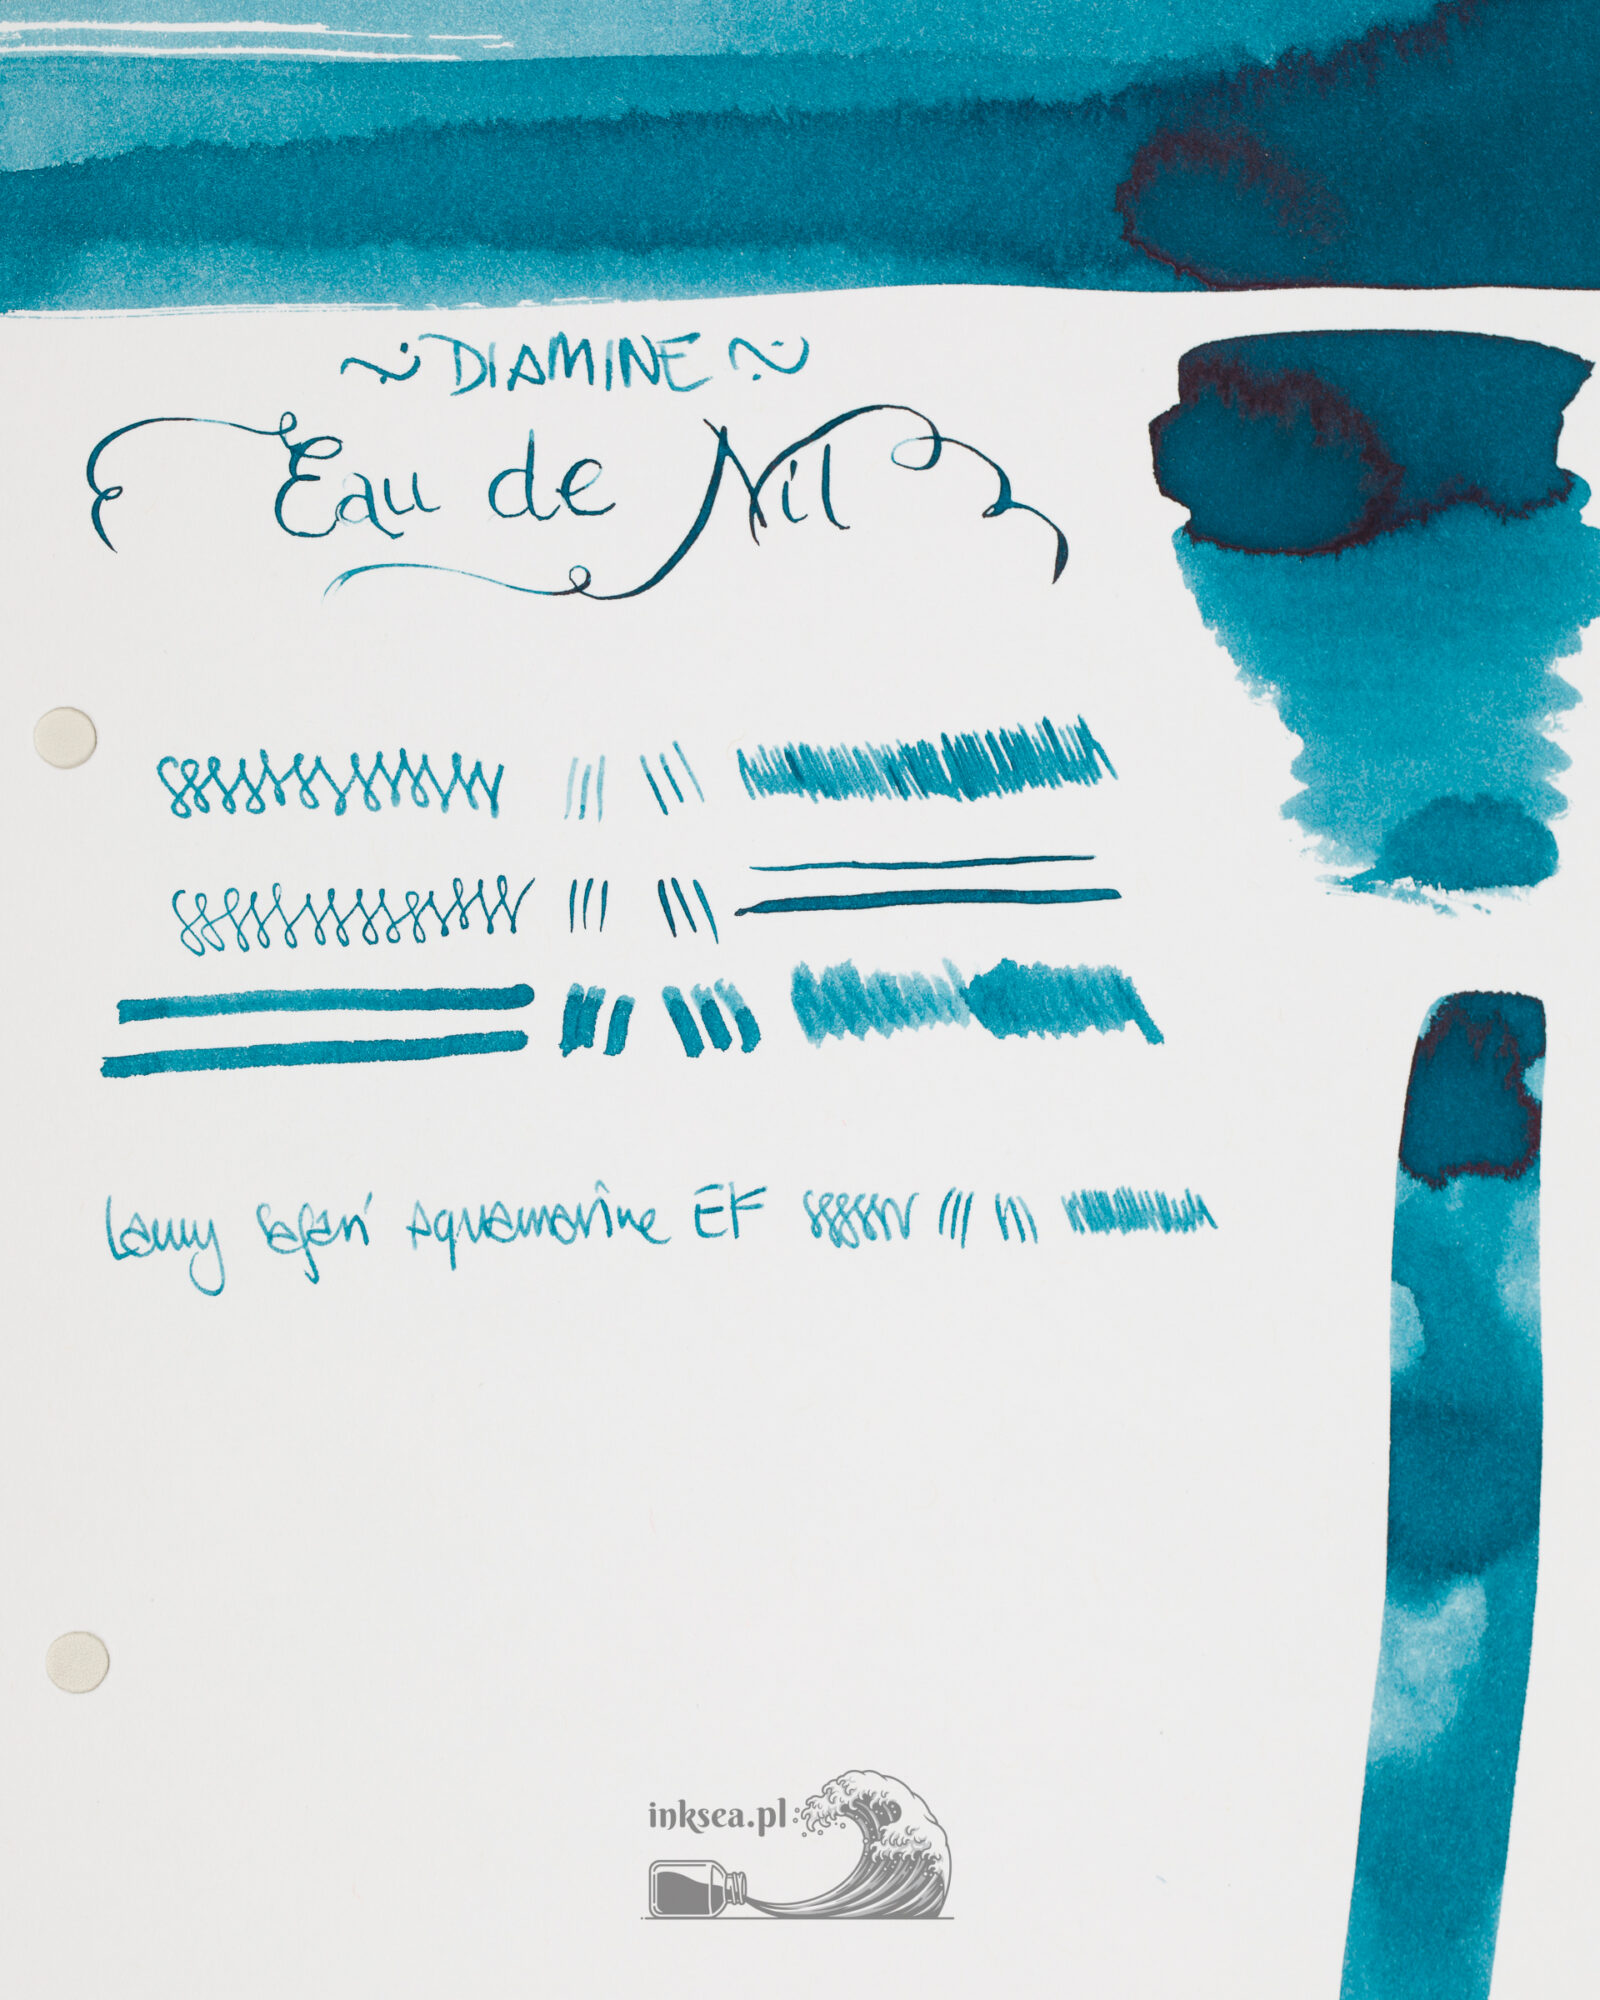 DIAMINE
Eau de Nil
Lamy Safari Aquamarine EF
inksea.pl